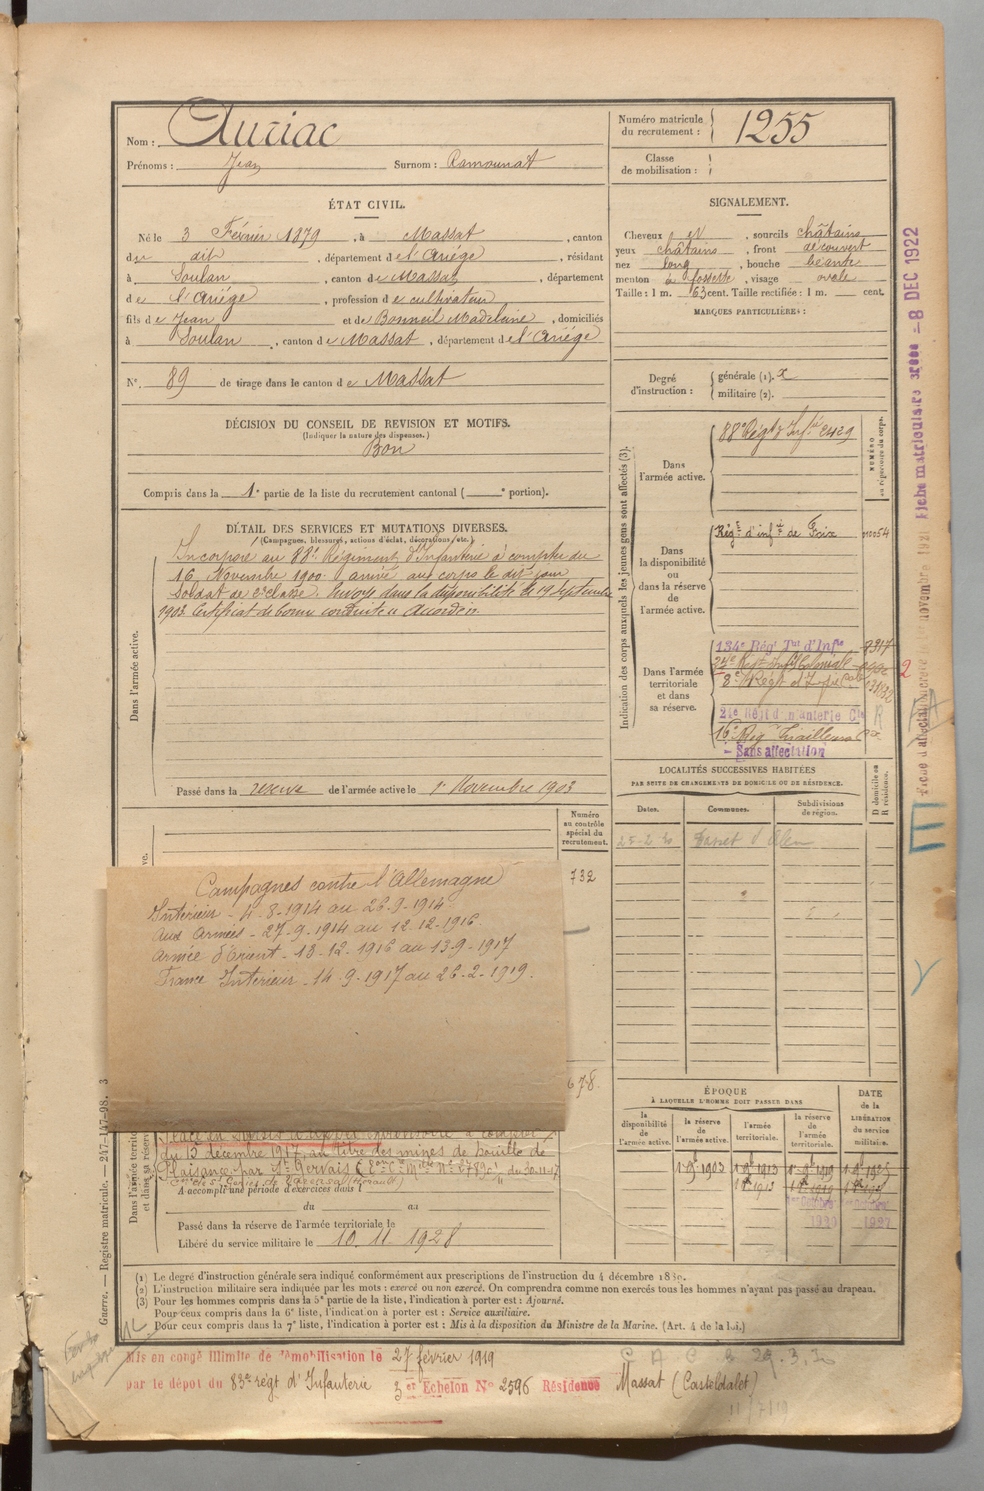 Nom : Auriac
Prénoms : Jean Surnom : Ramounat
Numéro matricule du recrutement : 1255
Classe de mobilisation :
ÉTAT CIVIL.
Né le 3 Février 1879, à Massat, canton
du dit, département de l'Ariége, résidant
à Soulan, canton de Massat, département
de l'Ariége, profession de cultivateur
fils de Jean et de Bonneil Madeleine, domiciliés
à Soulan, canton de Massat, département de l'Ariége
N° 89 de tirage dans le canton de Massat
SIGNALEMENT.
Cheveux et, sourcils châtains
yeux châtains, front découvert
nez long, bouche béante
menton à fossette, visage ovale
Taille : 1 m. 63 cent. Taille rectifiée : 1 m. cent.
MARQUES PARTICULIÈRES :
Degré d'instruction : générale (1). x
militaire (2).
DÉCISION DU CONSEIL DE REVISION ET MOTIFS.
(Indiquer la nature des dispenses.)
Bon
Compris dans la 1e partie de la liste du recrutement cantonal ( e portion).
DÉTAIL DES SERVICES ET MUTATIONS DIVERSES.
(Campagnes, blessures, actions d'éclat, décorations, etc.)
Dans l'armée active.
Incorporé au 88e Régiment d'Infanterie à compter du
16 Novembre 1900 arrivé au corps le dit jour
Soldat de 2e classe. Envoyé dans la disponibilité le 19 septembre
1903. Certificat de bonne conduite "Accordé".
Passé dans la réserve de l'armée active le 1er Novembre 1903
Indication des corps auxquels les jeunes gens sont affectés (3).
NUMÉRO au répertoire du corps.
Dans l'armée active.
88e Régt d'Infie 2429
Dans la disponibilité ou dans la réserve de l'armée active.
Régt d'infie de Foix 010054
Dans l'armée territoriale et dans sa réserve.
134e Rég Tal d'Infie 7317
24e Régt Inf Coloniale
8e Régt d'Infie Cole
21e Régt d'infanterie Cle R
16e Rég Tirailleurs
- Sans affectation
LOCALITÉS SUCCESSIVES HABITÉES
PAR SUITE DE CHANGEMENTS DE DOMICILE OU DE RÉSIDENCE.
Dates.
Communes.
Subdivisions de région.
D domicile ou R résidence.
Numéro au contrôle spécial du recrutement.
732
678.
Campagnes contre l'Allemagne
Intérieur - 4-8-1914 au 26-9-1914
Aux Armées - 27-9-1914 au 12-12-1916
Armée d'Orient - 13-12-1916 au 13-9-1917
France Intérieur - 14-9-1917 au 26-2-1919.
Placé en sursis d'appel
du 15 décembre 1917, au titre des mines de houille de
Plaisance par St Gervais
(Hérault)
A accompli une période d'exercices dans l
du au
Passé dans la réserve de l'armée territoriale le
Libéré du service militaire le 10.11.1928
ÉPOQUE
À LAQUELLE L'HOMME DOIT PASSER DANS
la disponibilité de l'armée active.
la réserve de l'armée active.
l'armée territoriale.
la réserve de l'armée territoriale.
DATE de la LIBÉRATION du service militaire.
1-9bre 1903 1-9bre 1913 1-9bre 1919 1-9bre 1925
(1) Le degré d'instruction générale sera indiqué conformément aux prescriptions de l'instruction du 4 décembre 1889.
(2) L'instruction militaire sera indiquée par les mots : exercé ou non exercé. On comprendra comme non exercés tous les hommes n'ayant pas passé au drapeau.
(3) Pour les hommes compris dans la 5e partie de la liste, l'indication à porter est : Ajourné.
Pour ceux compris dans la 6e liste, l'indication à porter est : Service auxiliaire.
Pour ceux compris dans la 7e liste, l'indication à porter est : Mis à la disposition du Ministre de la Marine. (Art. 4 de la loi.)
Mis en congé illimité de démobilisation le 27 février 1919
par le dépôt du 83e régt d'Infanterie 3er Echelon N° 2596 Résidence Massat (Casteldalet)
11/7/19
Guerre. — Registre matricule. — 247-147-98. 3
Fiche matriculaire créée - 8 DEC 1922
2